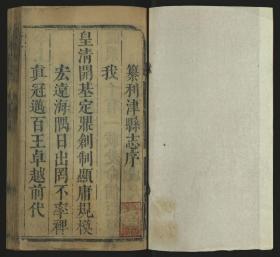 纂利津縣志序
我
皇清開基定鼎創制顯庸規模
宏遠海隅日出罔不率裨
真冠邁百王卓越前代